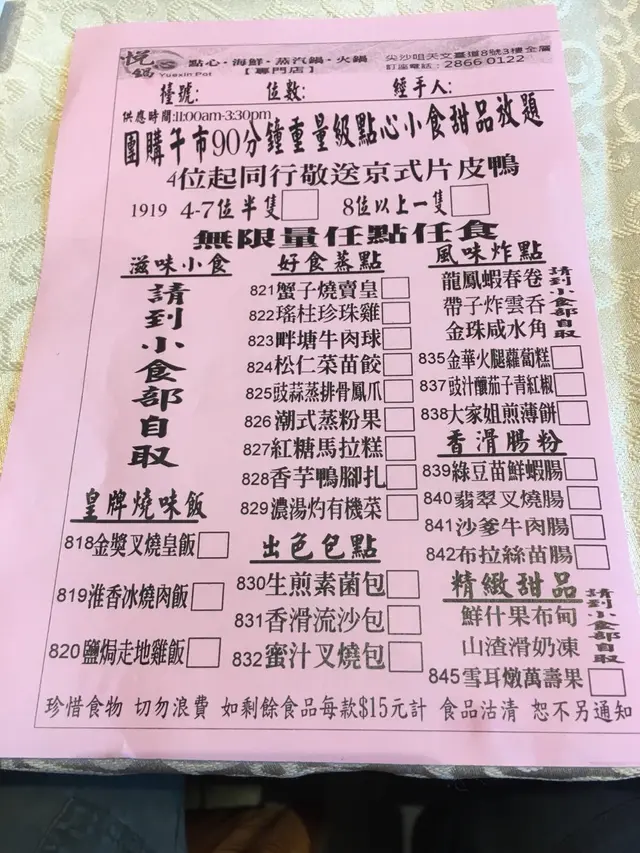 悅鍋
Yuexin Pot
點心·海鮮·蒸汽鍋·火鍋
【專門店】
尖沙咀天文臺道8號3樓全層
訂座電話:2866 0122
檯號: 位數: 經手人:
供應時間:11:00am-3:30pm
團購午市90分鐘重量級點心小食甜品放題
4位起同行敬送京式片皮鴨
1919 4-7位半隻 8位以上一隻
無限量任點任食
滋味小食
請到小食部自取
皇牌燒味飯
818金獎叉燒皇飯
819淮香冰燒肉飯
820鹽焗走地雞飯
好食蒸點
821蟹子燒賣皇
822瑤柱珍珠雞
823畔塘牛肉球
824松仁菜苗餃
825豉蒜蒸排骨鳳爪
826潮式蒸粉果
827紅糖馬拉糕
828香芋鴨腳扎
829濃湯灼有機菜
出色包點
830生煎素菌包
831香滑流沙包
832蜜汁叉燒包
風味炸點
龍鳳蝦春卷
帶子炸雲吞
金珠咸水角
請到小食部自取
835金華火腿蘿蔔糕
837豉汁釀茄子青紅椒
838大家姐煎薄餅
香滑腸粉
839綠豆苗鮮蝦腸
840翡翠叉燒腸
841沙爹牛肉腸
842布拉絲苗腸
精緻甜品
鮮什果布甸
山渣滑奶凍
請到小食部自取
845雪耳燉萬壽果
珍惜食物 切勿浪費 如剩餘食品每款$15元計 食品沽清 恕不另通知